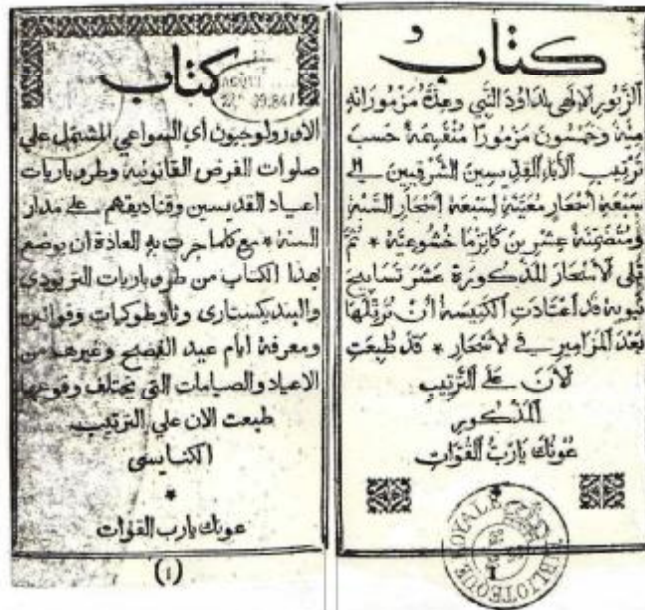 كتاب
الزبور الالهى لداوود النبي وعدة مزموراته
مية وخمسون مزمورا منقسمة حسب
ترتيب الأباء القديسين الشرقيين الى
سبعة اسحار معينة لسبعة اسحار السنة
ومتضمنة عشرين كاتزما خشوعية * ثم
تلى الاسحار المذكورة عشر تسابيح
نبوية قد اعتادت الكنيسة أن ترتلها
بعد المزامير في الاسحار * قد طبعت
لان على الترتيب
المذكور
عونك يارب القوات
BIBLIOTEQUE ROYALE
كتاب
الاورولوجيون أي السواعي المشتمل علي
صلوات الفرض القانونيه وطروباريات
اعياد القديسين وقناديقهم على مدار
السنة * مع كلما جرت به العادة ان يوضع
بهذا الكتاب من طروباريات التريودي
والبنديكستاري وثاوطوكيات وقوانين
ومعرفة ايام عيد الفصح وغيرها من
الاعياد والصيامات التي يختلف وقوعها
طبعت الان علي الترتيب
الكنايسي
*
عونك يارب القوات
(١)